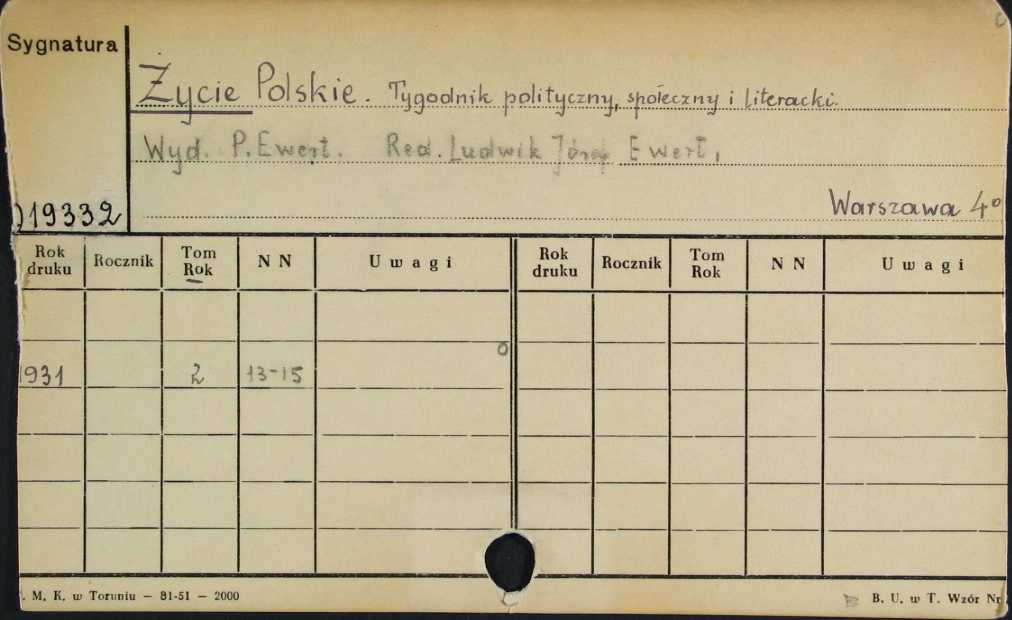 Sygnatura
Życie Polskie. Tygodnik polityczny, społeczny i literacki.
Wyd. P. Ewert. Red. Ludwik Józef Ewert,
Warszawa 4°
)19332
Rok druku Rocznik Tom Rok N N Uwagi Rok druku Rocznik Tom Rok N N Uwagi
1931 2 13-15
. M. K. w Toruniu — 81-51 — 2000
B. U. w T. Wzór Nr